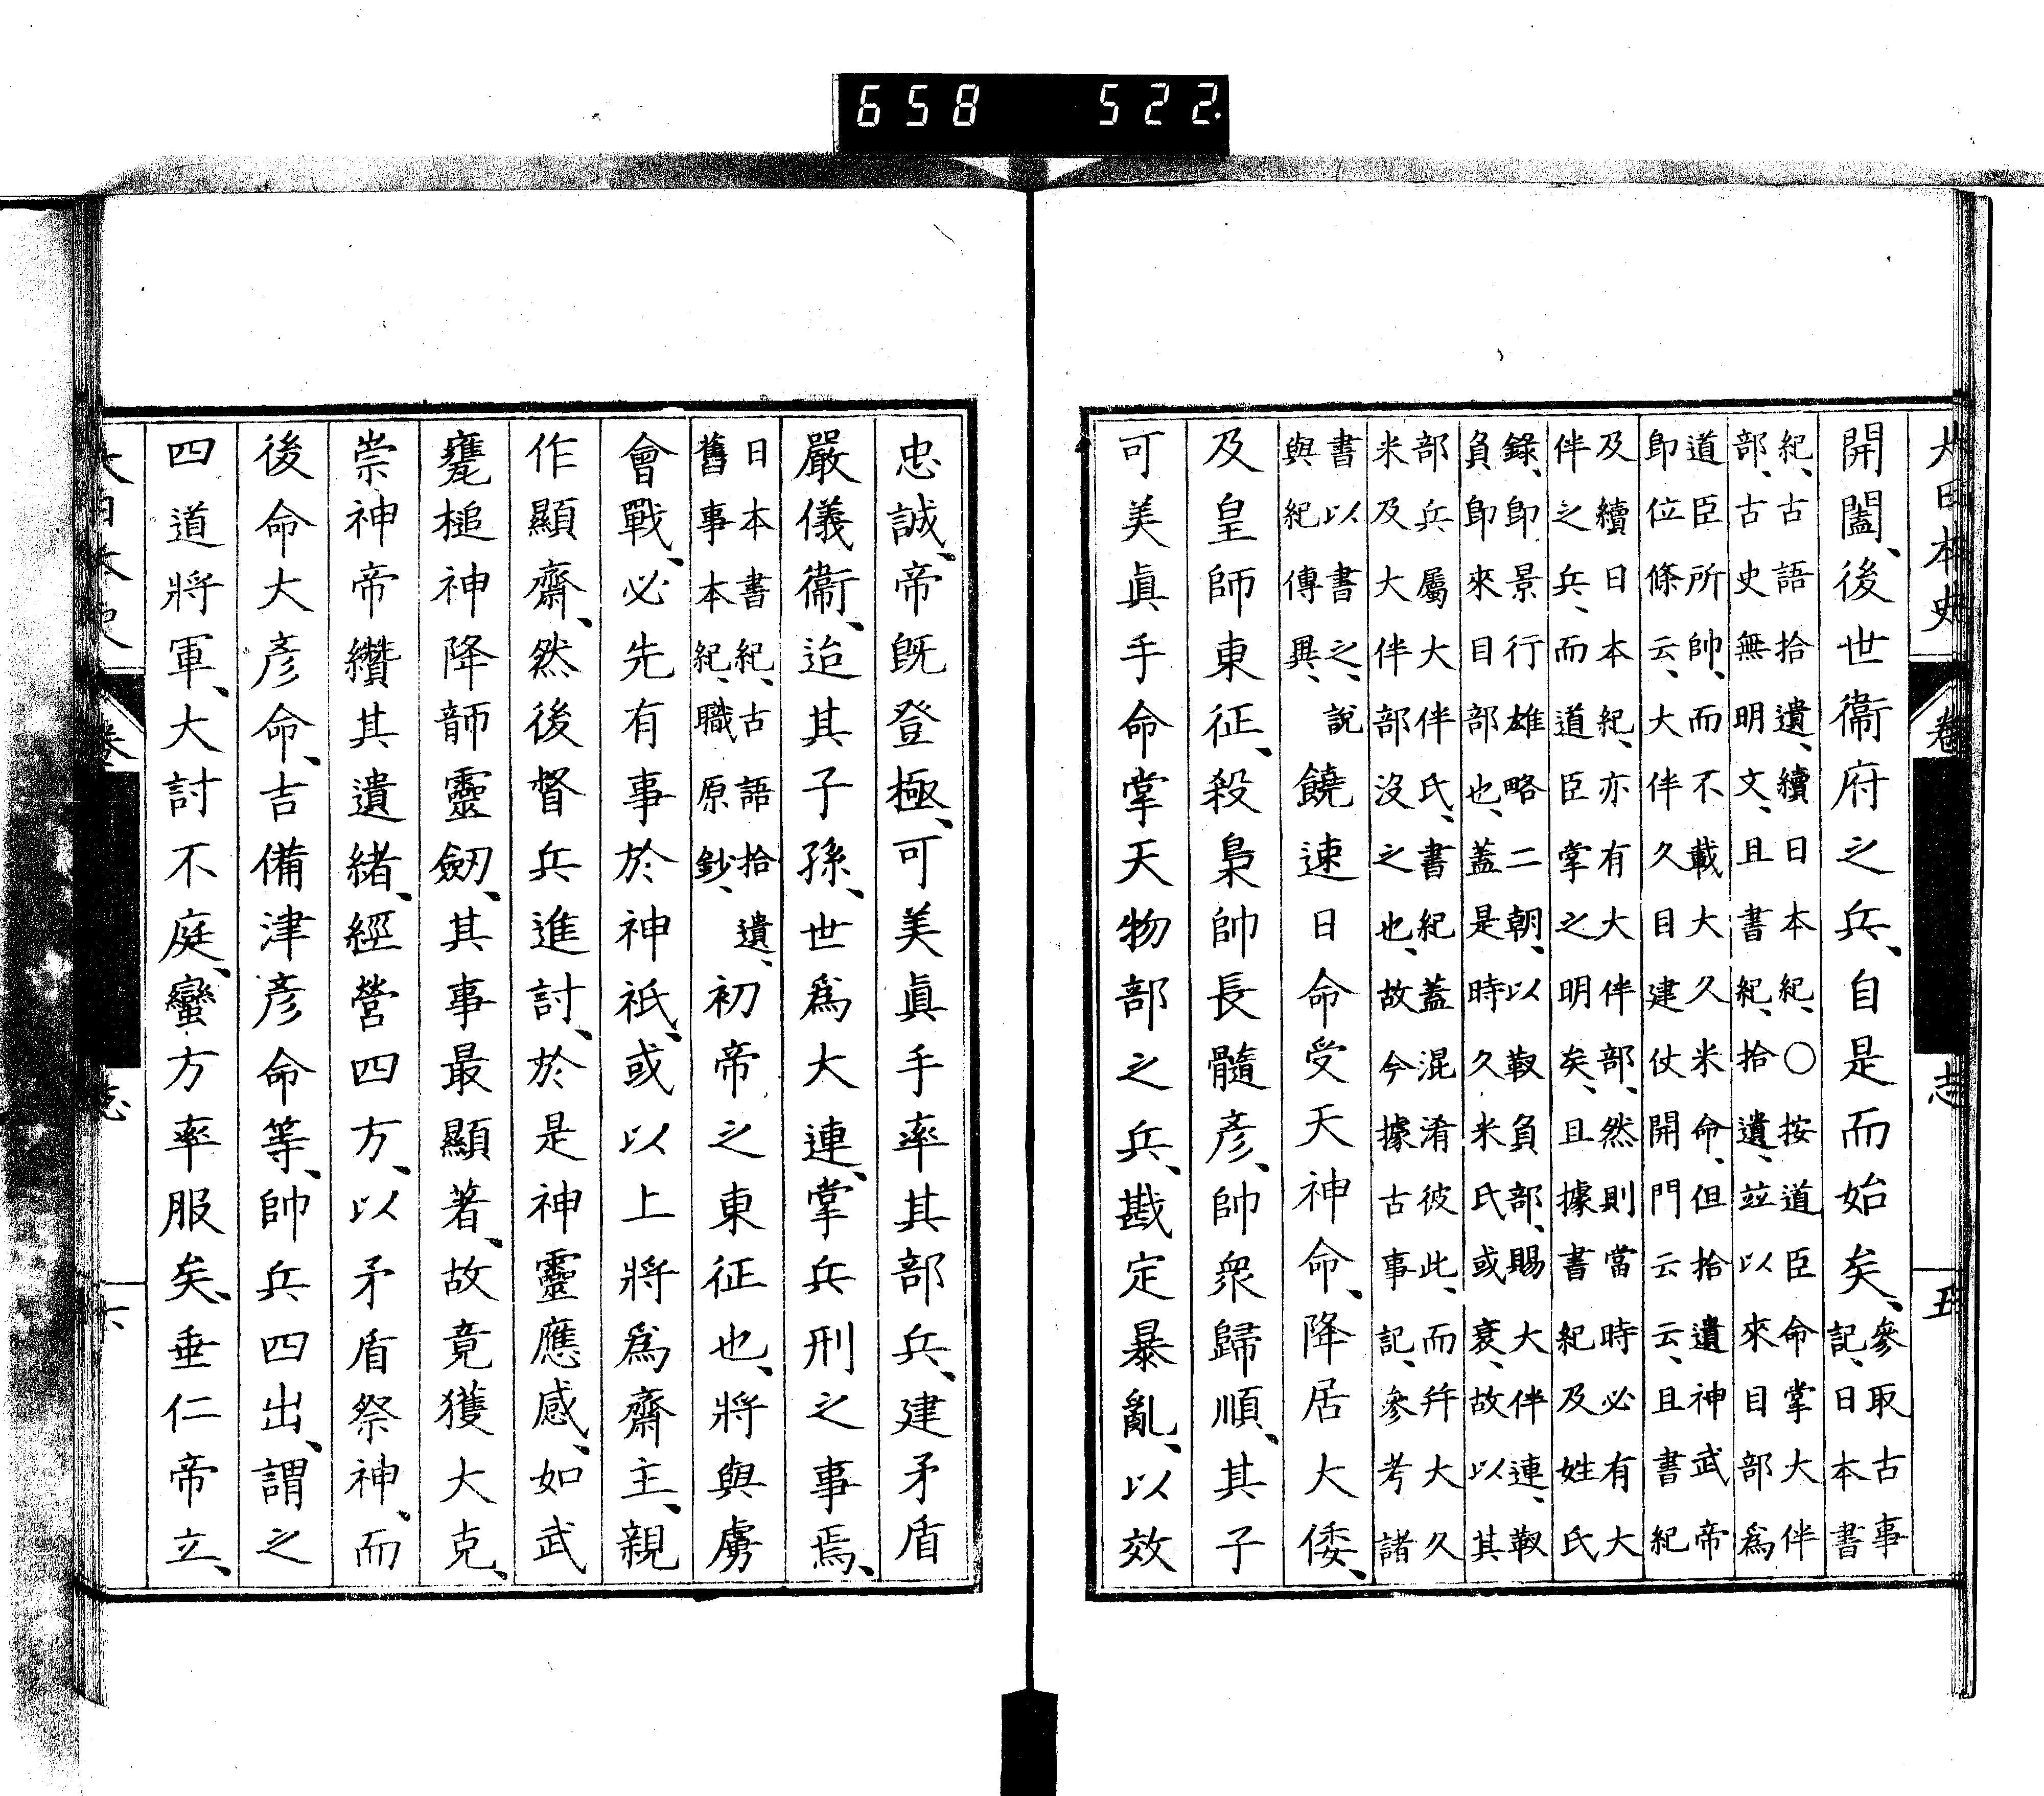 大日本史 卷 志 五
開闔、後世衞府之兵、自是而始矣、參取古事
記、日本書
紀、古語拾遺、續日本紀、○按道臣命掌大伴
部、古史無明文、且書紀、拾遺、竝以來目部爲
道臣所帥、而不載大久米命、但拾遺神武帝
即位條云、大伴久目建仗開門云云、且書紀
及續日本紀、亦有大伴部、然則當時必有大
伴之兵、而道臣掌之明矣、且據書紀及姓氏
錄、即景行雄略二朝、以靫負部、賜大伴連、靫
負即來目部也、蓋是時久米氏或衰、故以其
部兵屬大伴氏、書紀蓋混淆彼此、而幷大久
米及大伴部沒之也、故今據古事記、參考諸
書以書之、說
與紀傳異、饒速日命受天神命、降居大倭、
及皇師東征、殺梟帥長髓彥、帥衆歸順、其子
可美眞手命掌天物部之兵、戡定暴亂、以效
忠誠、帝既登極、可美眞手率其部兵、建矛盾
嚴儀衞、迨其子孫、世爲大連、掌兵刑之事焉、
日本書紀、古語拾遺、
舊事本紀、職原鈔、初帝之東征也、將與虜
會戰、必先有事於神祇、或以上將爲齋主、親
作顯齋、然後督兵進討、於是神靈應感、如武
甕槌神降韴靈劒、其事最顯著、故竟獲大克、
崇神帝纘其遺緒、經營四方、以矛盾祭神、而
後命大彥命、吉備津彥命等、帥兵四出、謂之
四道將軍、大討不庭、蠻方率服矣、垂仁帝立、
大日本史 卷 志 六
658 522.